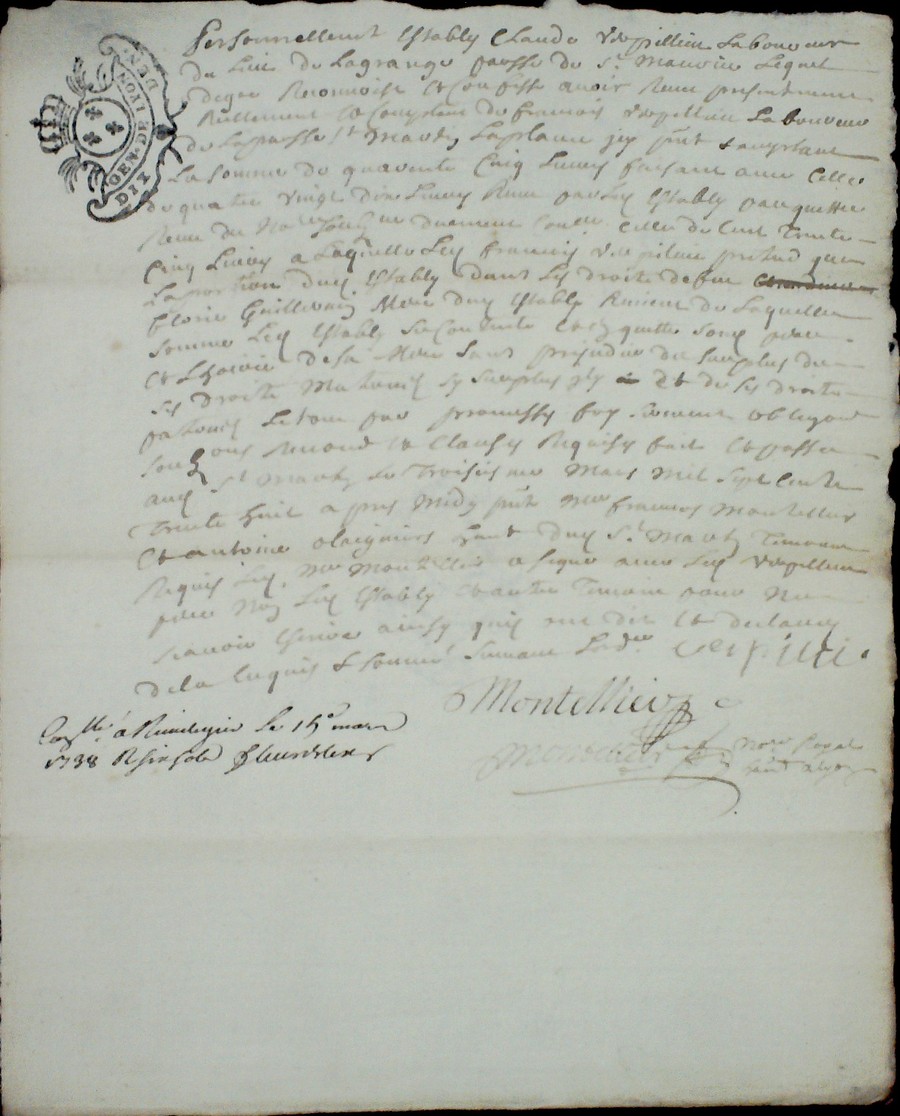 GEN. DE LYON
DIX DEN.
Personnellement Estably Claude Verpillieu Laboureur
du Lieu de Lagrange parsse de St Maurice Lequel
degre Reconnoist et Confesse avoir Receu presentement
Reellement et Comptant de francois Verpillieu Laboureur
de Laparsse St Martin Laplaine icy pnt & acceptant
La Somme de quarente Cinq Livres faisant avec Celle
de quatre vingt dix Livres Receu par Led Estably par quittce
Receu du Nore duement Celle de Cent Trente
Cinq Livres a Laquelle Led francois Verpillieu pretend que
La portion dud Estably dans Les droits defue
florie Guillerain Mere dud Estably Revient de Laquelle
Somme Led Estably Se Contente et quitte Son pere
et Lhoirie de Sa Mere Sans prejudice du Surplus de
Ses droits Maternels Sy Surplus y a et de Ses droits
paternels Le tout par promesses foy Serment obligaon
Soubmons Renonaons et Clauses Requises fait et passe
aud St Martin Le Troisieme Mars Mil Sept Cents
Trente huit apres Midy pnts Mre francois Montellier
et antoine hant dud St Martin Temoins
Requis Led Mre Montellier a signe avec Led Verpillieu
pere Non Led Estably et autre Temoin pour ne
Scavoir Ecrire ainsy quils ont dit et declare
de ce Enquis & Sommes Suivant Lordce verpilli
Montellier
Conllé à le 15e mars
1738 R six sols
nore Royal